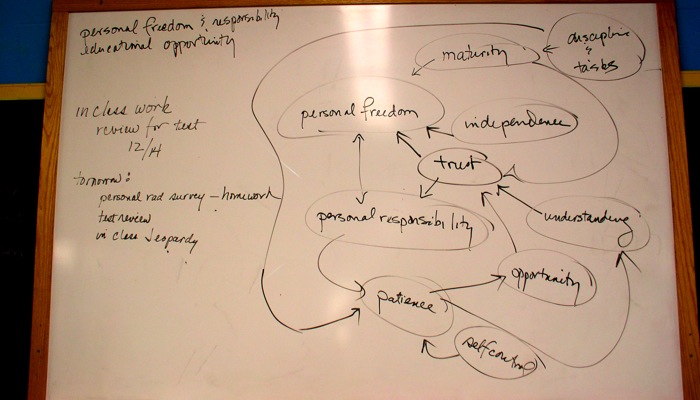 personal freedom & responsibility
educational opportunity
in class work
review for test
12/14
tomorrow:
personal rad survey – homework
test review
in class Jeopardy
discipline
&
tasks
maturity
personal freedom
independence
trust
personal responsibility
understanding
opportunity
patience
self control